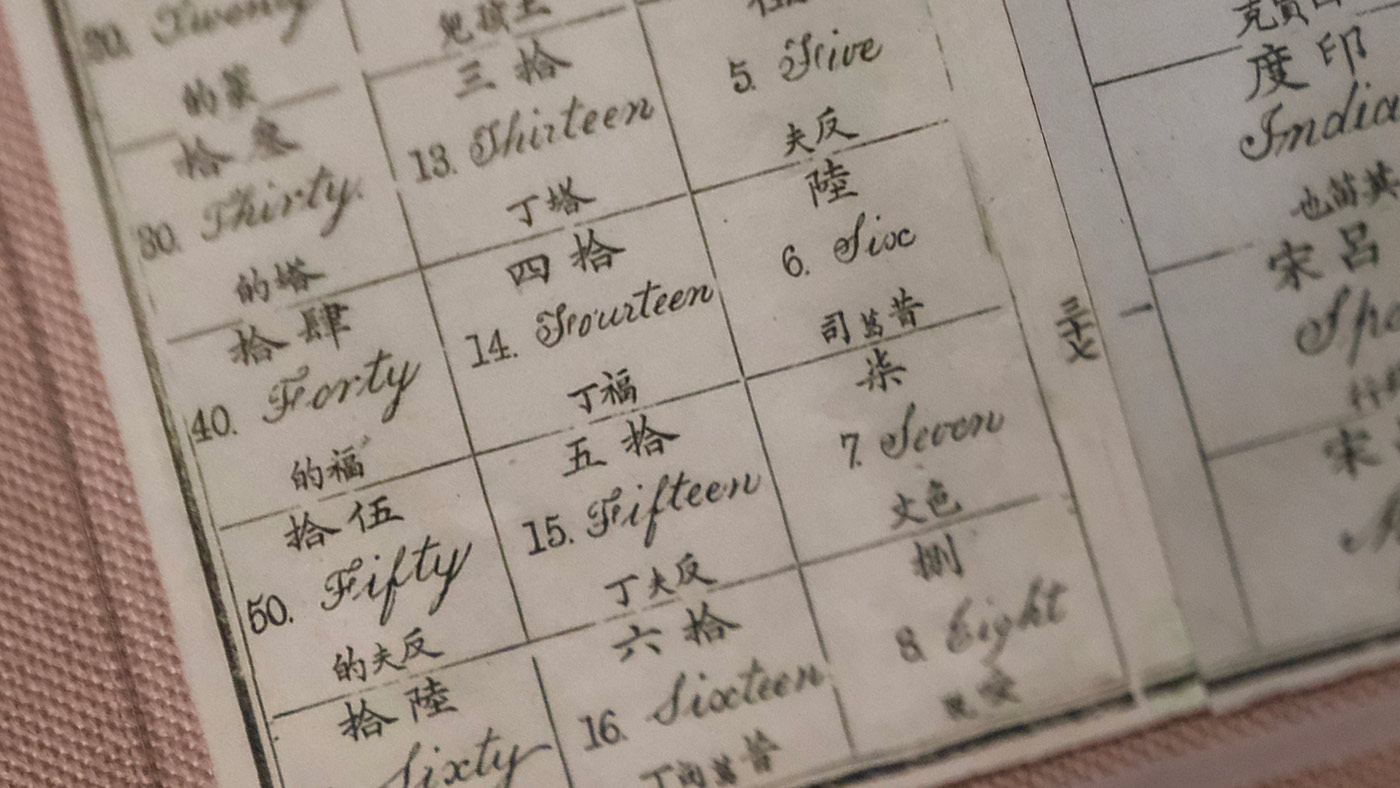 印度
India
呂宋
Sp
宋
三十七
一
5. Five
反夫
陸
6. Six
昔篤司
柒
7. Seven
色文
捌
8. Eight
拾三
13. Thirteen
塔丁
拾四
14. Fourteen
福丁
拾五
15. Fifteen
反夫丁
拾六
16. Sixteen
20. Twenty
叁拾
30. Thirty.
塔的
肆拾
40. Forty
福的
伍拾
50. Fifty
反夫的
陸拾
Sixty